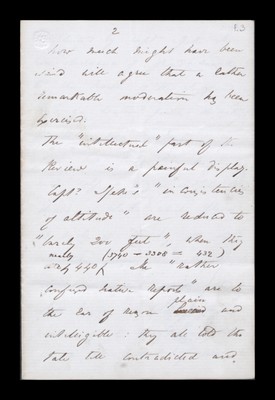 2
how much might have been
said will agree that a rather
remarkable moderation has been
exercised.
The "intellectual" part of the
Review is a painful display.
Capt? Speke's "inconsistencies
of altitude" are reduced to
"barely 200 feet", when they
really (3740 - 3308 = 432)
440 / the "rather
confused native reports" are to
the ear of reason plain and
intelligible: they all told the
tale till contradicted and